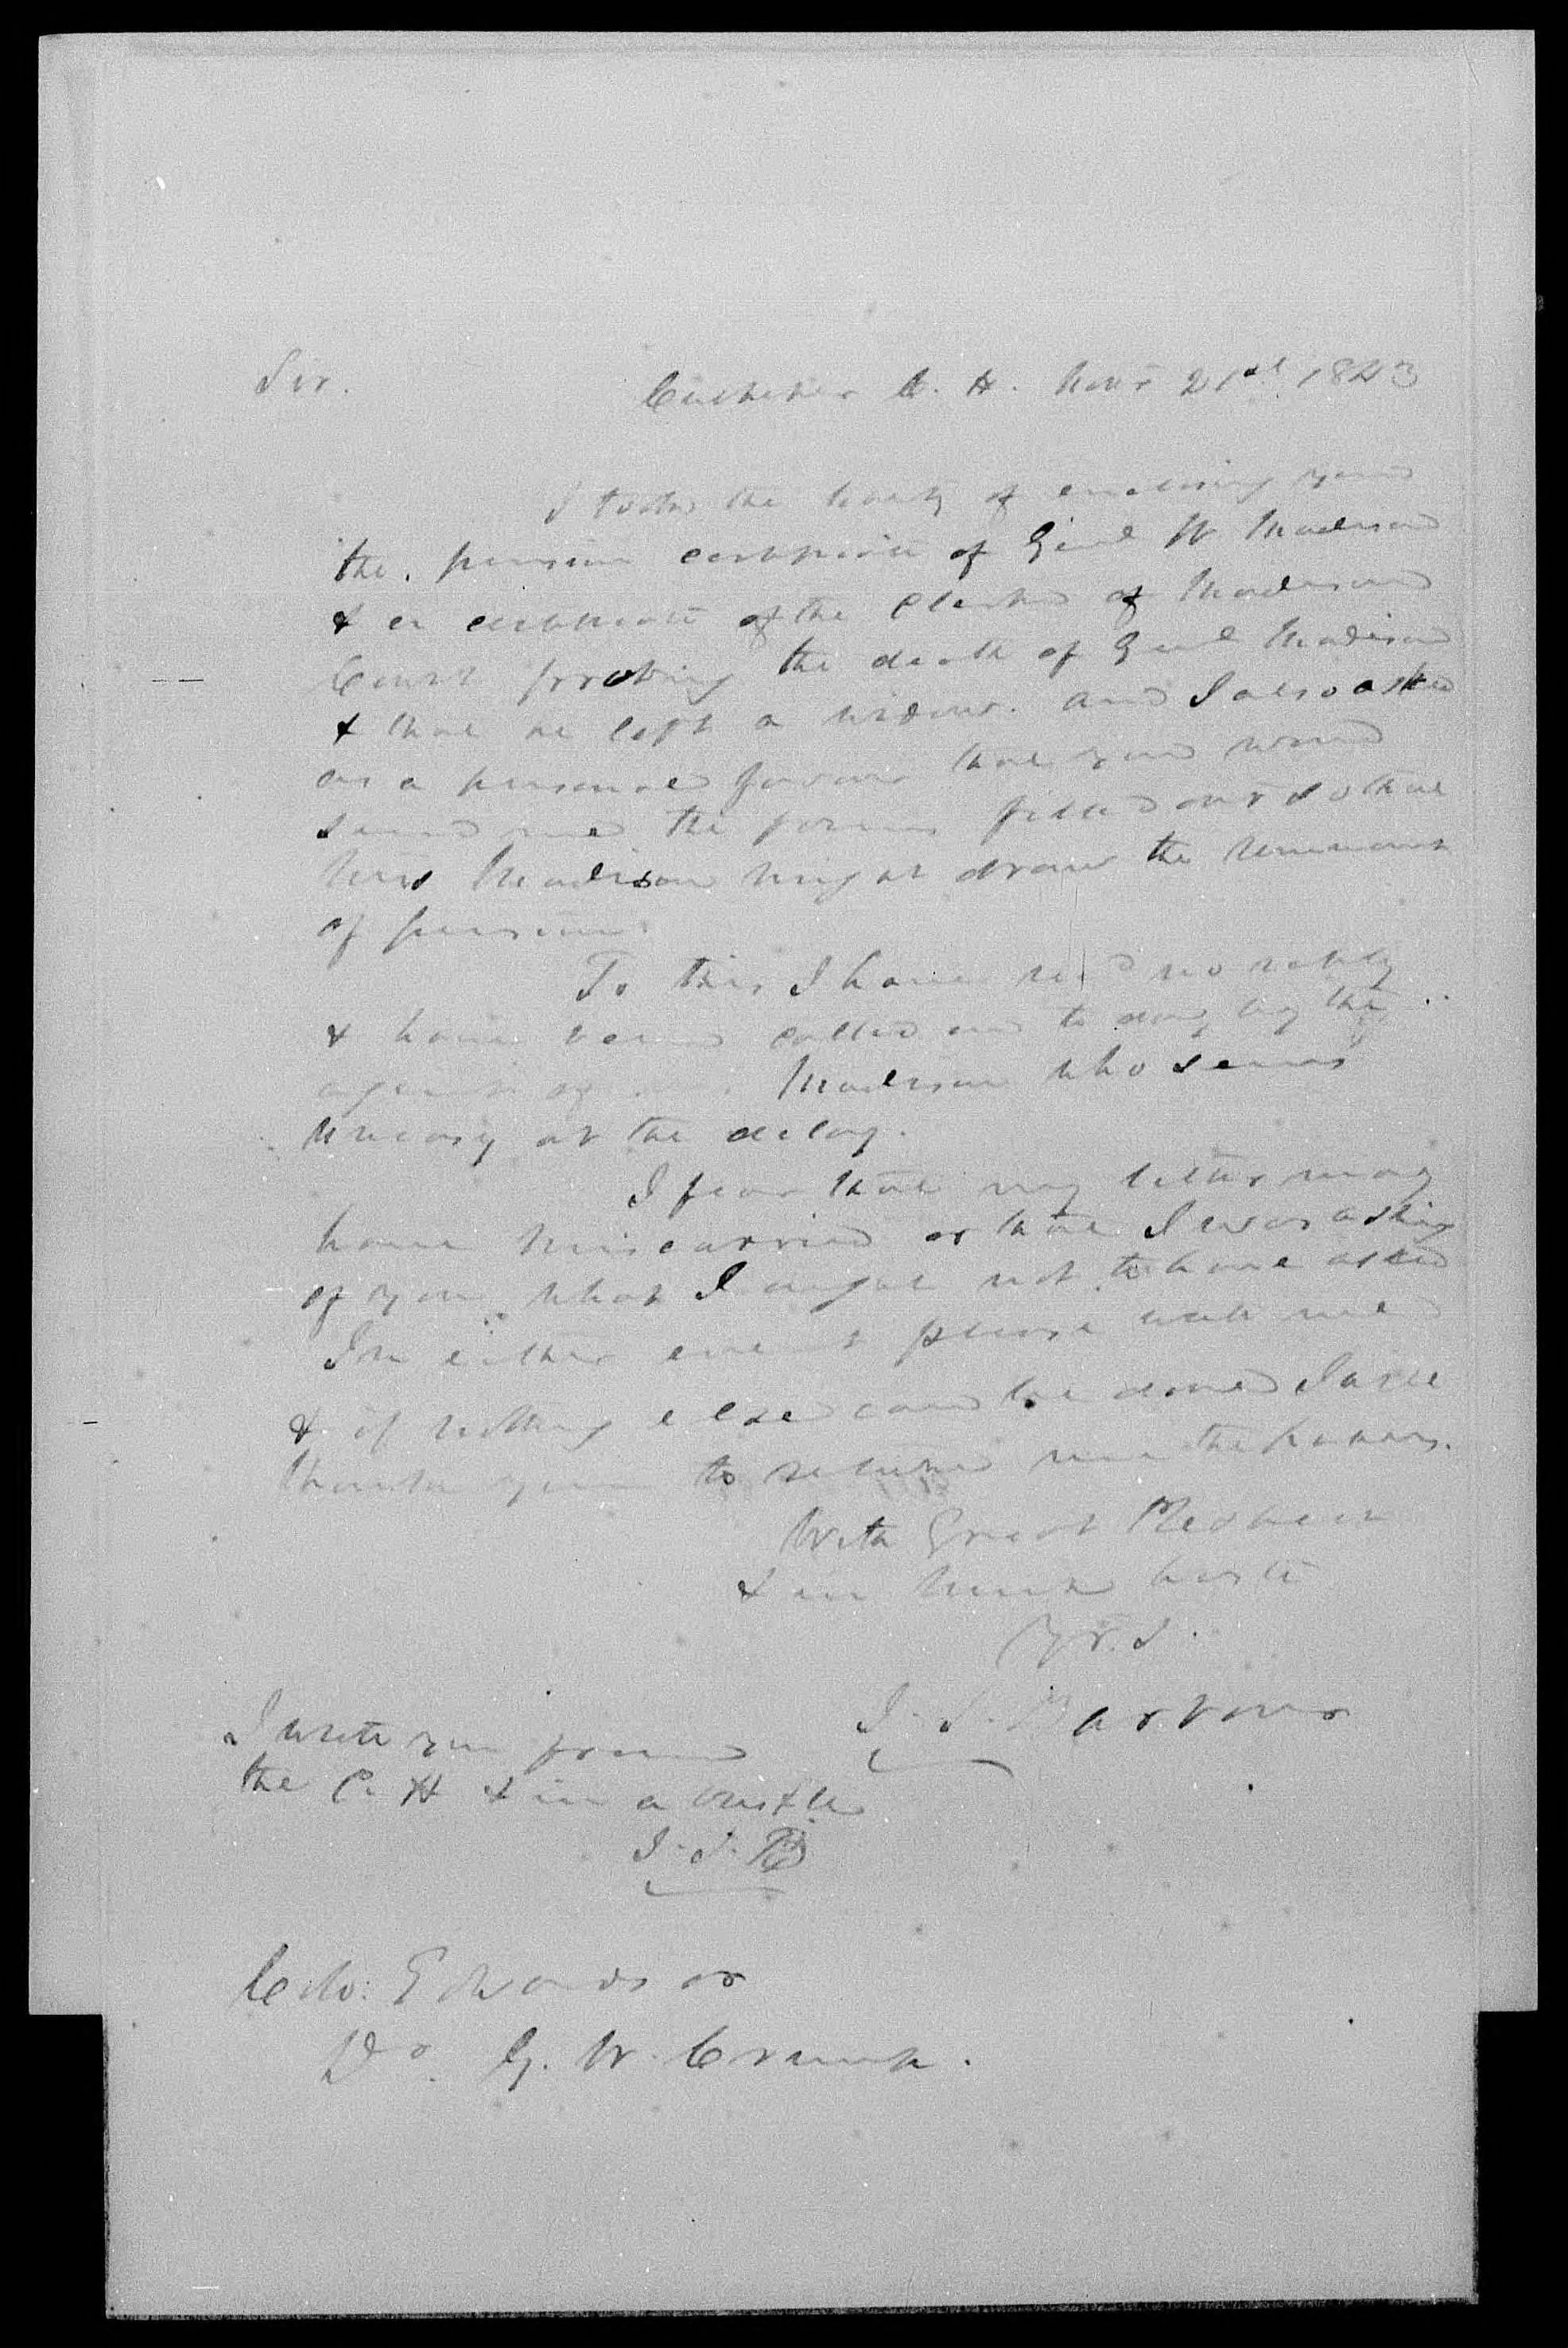 Sir. Culpeper C. H. Novr 21st 1843
I took the liberty of enclosing you
the pension certificate of Genl W Madison
& a certificate of the Clerk of Madison
Court proving the death of Genl Madison
& that he left a widow. and I also asked
as a personal favour that you would
send me the forms filled out so that
Mrs Madison might draw the
of pension
To this I have recd no reply
& have been called on to day by the
agent of Madison who seems
uneasy at the delay.
I fear that my letter may
have miscarried or that I was asking
of you what I ought not to have asked
In either event please write me
& if nothing else can be done I will
thank you to return me the papers.
With Great Respect
& in much haste
Yr. S.
J. S. Barbour
I write you from
the C. H & in a bustle
J. S. B
Colo: Edwards or
Dr. G. W. Crump.